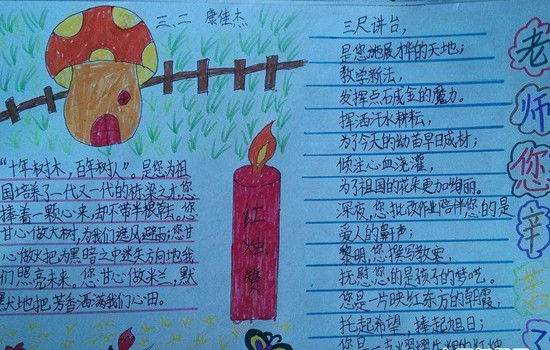 三、二 康佳杰
“十年树木，百年树人”。是您为祖
国培养了一代又一代的栋梁之才,您
捧着一颗心来,却不带半根草。您
甘心做大树,为我们遮风避雨;您甘
心做火把为黑暗之中迷失方向地我
们照亮未来。您甘心做米兰,默
默地把芳香洒满我们心田。
红烛赞
三尺讲台，
是您施展才华的天地；
教学新法，
发挥点石成金的魔力。
挥洒汗水耕耘，
为了今天的幼苗早日成材；
倾注心血浇灌，
为了祖国的花朵更加绚丽。
深夜，您批改作业陪伴您的是
爱人的鼾声；
黎明，您撰写教案，
抚慰您的是孩子的梦呓。
您是一片映红东方的朝霞，
托起希望，捧起旭日；
您是一支
的红烛
老师您辛苦了